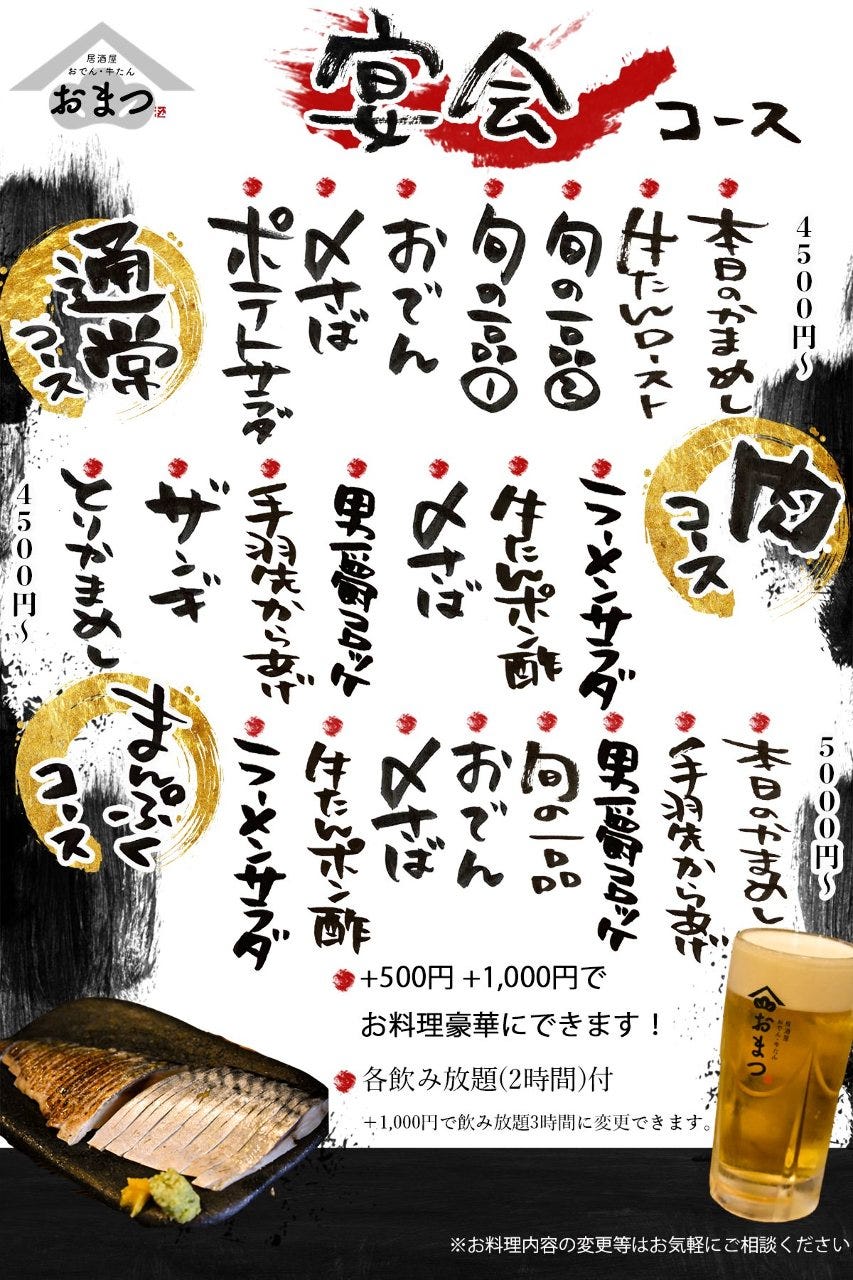 居酒屋
おでん・牛たん
おまつ
宴会コース
通常コース
4500円～
本日のかまめし
牛たんロースト
旬の一品②
旬の一品①
おでん
〆さば
ポテトサラダ
肉コース
ラーメンサラダ
牛たんポン酢
〆さば
男爵コロッケ
手羽先からあげ
ザンギ
とりかまめし
4500円～
まんぷくコース
5000円～
本日のかまめし
手羽先からあげ
男爵コロッケ
旬の一品
おでん
〆さば
牛たんポン酢
ラーメンサラダ
+500円 +1,000円で
お料理豪華にできます！
各飲み放題(2時間)付
＋1,000円で飲み放題3時間に変更できます。
居酒屋
おでん・牛たん
おまつ
※お料理内容の変更等はお気軽にご相談ください